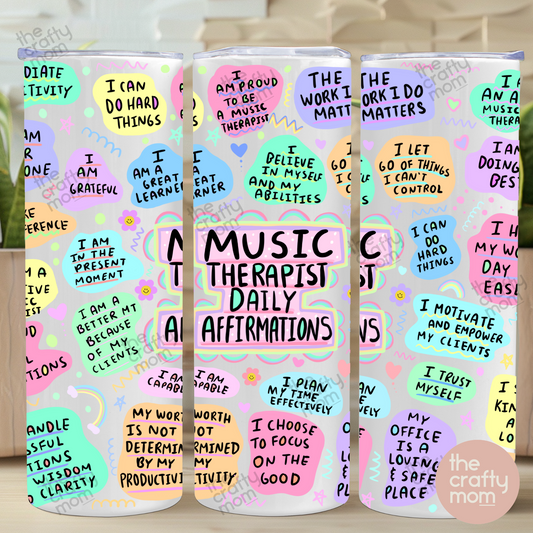 the crafty mom
DIATE
TIVITY
I CAN
DO HARD
THINGS
I
AM
GRATEFUL
I
AM A
GREAT
LEARNER
FERENCE
I AM
IN THE
PRESENT
MOMENT
I AM A
BETTER MT
BECAUSE
OF MY
CLIENTS
I AM
CAPABLE
MY WORTH
IS NOT
DETERMINED
BY MY
PRODUCTIVITY
ANDLE
SSFUL
TIONS
WISDOM
D CLARITY
I
AM PROUD
TO BE
A MUSIC
THERAPIST
THE
WORK I DO
MATTERS
I
BELIEVE
IN MYSELF
AND MY
ABILITIES
MUSIC
THERAPIST
DAILY
AFFIRMATIONS
I AM
CAPABLE
I PLAN
MY TIME
EFFECTIVELY
I CHOOSE
TO FOCUS
ON THE
GOOD
the crafty mom
THE
WORK I DO
MATTERS
I LET
GO OF THINGS
I CAN'T
CONTROL
I
CAN
DO
HARD
THINGS
I MOTIVATE
AND EMPOWER
MY CLIENTS
I TRUST
MYSELF
MY
OFFICE
IS A
LOVING
& SAFE
PLACE
I AM
DOING
BEST
MY WO
DAY
EASI
the
crafty
mom